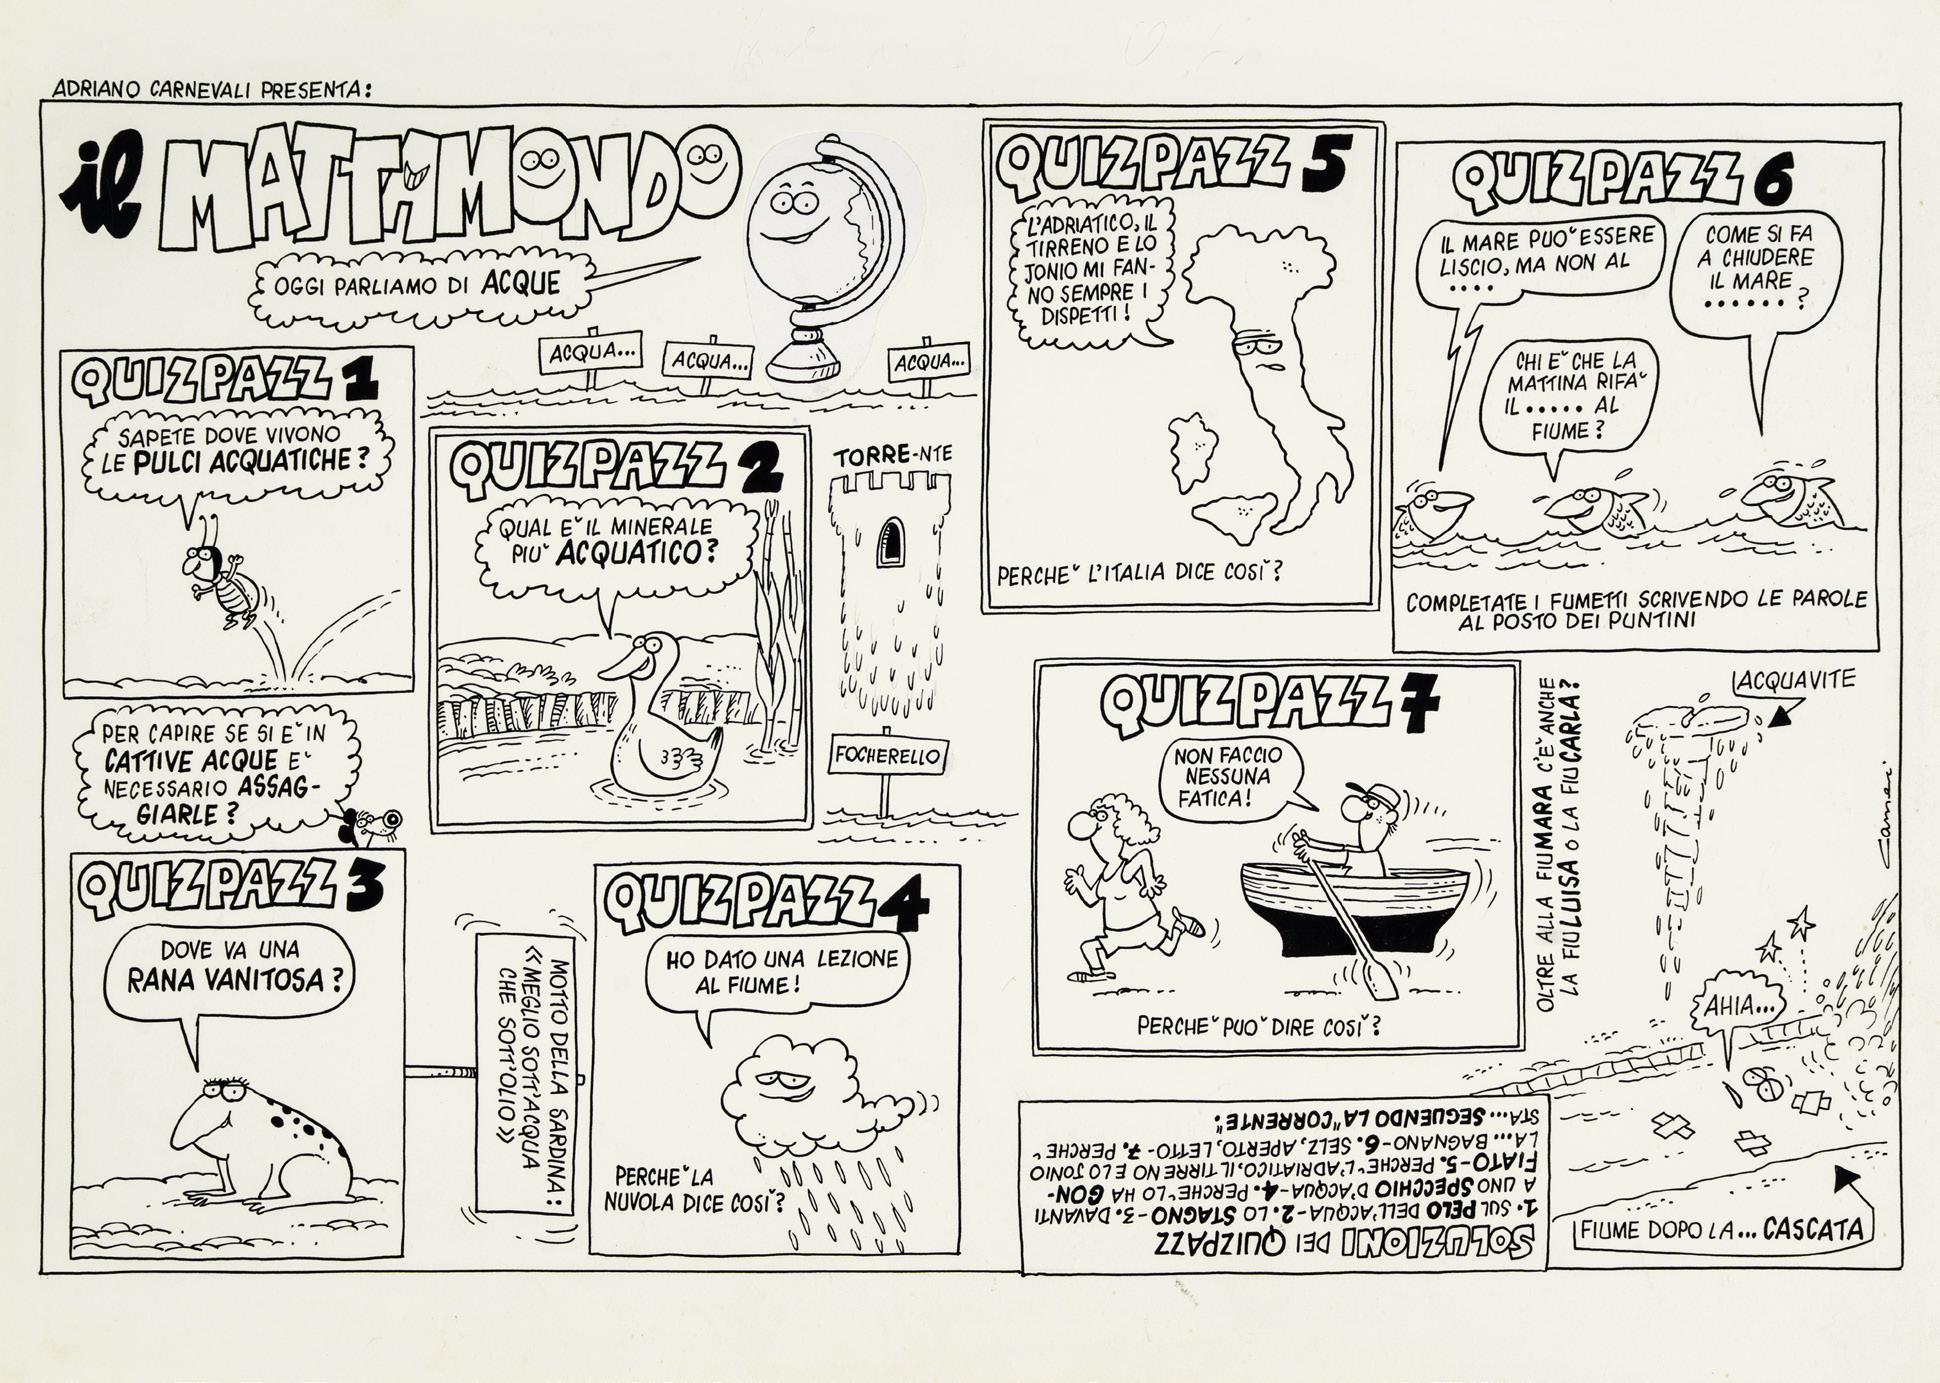 ADRIANO CARNEVALI PRESENTA:
il MATTAMONDO
OGGI PARLIAMO DI ACQUE
ACQUA...
ACQUA...
ACQUA...
QUIZPAZZ 1
SAPETE DOVE VIVONO
LE PULCI ACQUATICHE?
PER CAPIRE SE SI E` IN
CATTIVE ACQUE E`
NECESSARIO ASSAG-
GIARLE?
QUIZPAZZ 2
QUAL E` IL MINERALE
PIU` ACQUATICO?
TORRE-NTE
FOCHERELLO
QUIZPAZZ 3
DOVE VA UNA
RANA VANITOSA?
MOTTO DELLA SARDINA:
«MEGLIO SOTT'ACQUA
CHE SOTT'OLIO»
QUIZPAZZ 4
HO DATO UNA LEZIONE
AL FIUME!
PERCHE` LA
NUVOLA DICE COSI`?
QUIZPAZZ 5
L'ADRIATICO, IL
TIRRENO E LO
JONIO MI FAN-
NO SEMPRE I
DISPETTI!
PERCHE` L'ITALIA DICE COSI`?
QUIZPAZZ 6
IL MARE PUO` ESSERE
LISCIO, MA NON AL
....
COME SI FA
A CHIUDERE
IL MARE
......?
CHI E` CHE LA
MATTINA RIFA`
IL ..... AL
FIUME?
COMPLETATE I FUMETTI SCRIVENDO LE PAROLE
AL POSTO DEI PUNTINI
QUIZPAZZ 7
NON FACCIO
NESSUNA
FATICA!
PERCHE` PUO` DIRE COSI`?
OLTRE ALLA FIUMARA C'E` ANCHE
LA FIULUISA O LA FIUCARLA?
ACQUAVITE
Carnevali
AHIA...
FIUME DOPO LA... CASCATA
SOLUZIONI DEI QUIZPAZZ
1. SUL PELO DELL'ACQUA-2. LO STAGNO-3. DAVANTI
A UNO SPECCHIO D'ACQUA-4. PERCHE` LO HA GON-
FIATO-5. PERCHE` L'ADRIATICO, IL TIRRENO E LO JONIO
LA... BAGNANO-6. SELZ, APERTO, LETTO-7. PERCHE`
STA... SEGUENDO LA "CORRENTE".